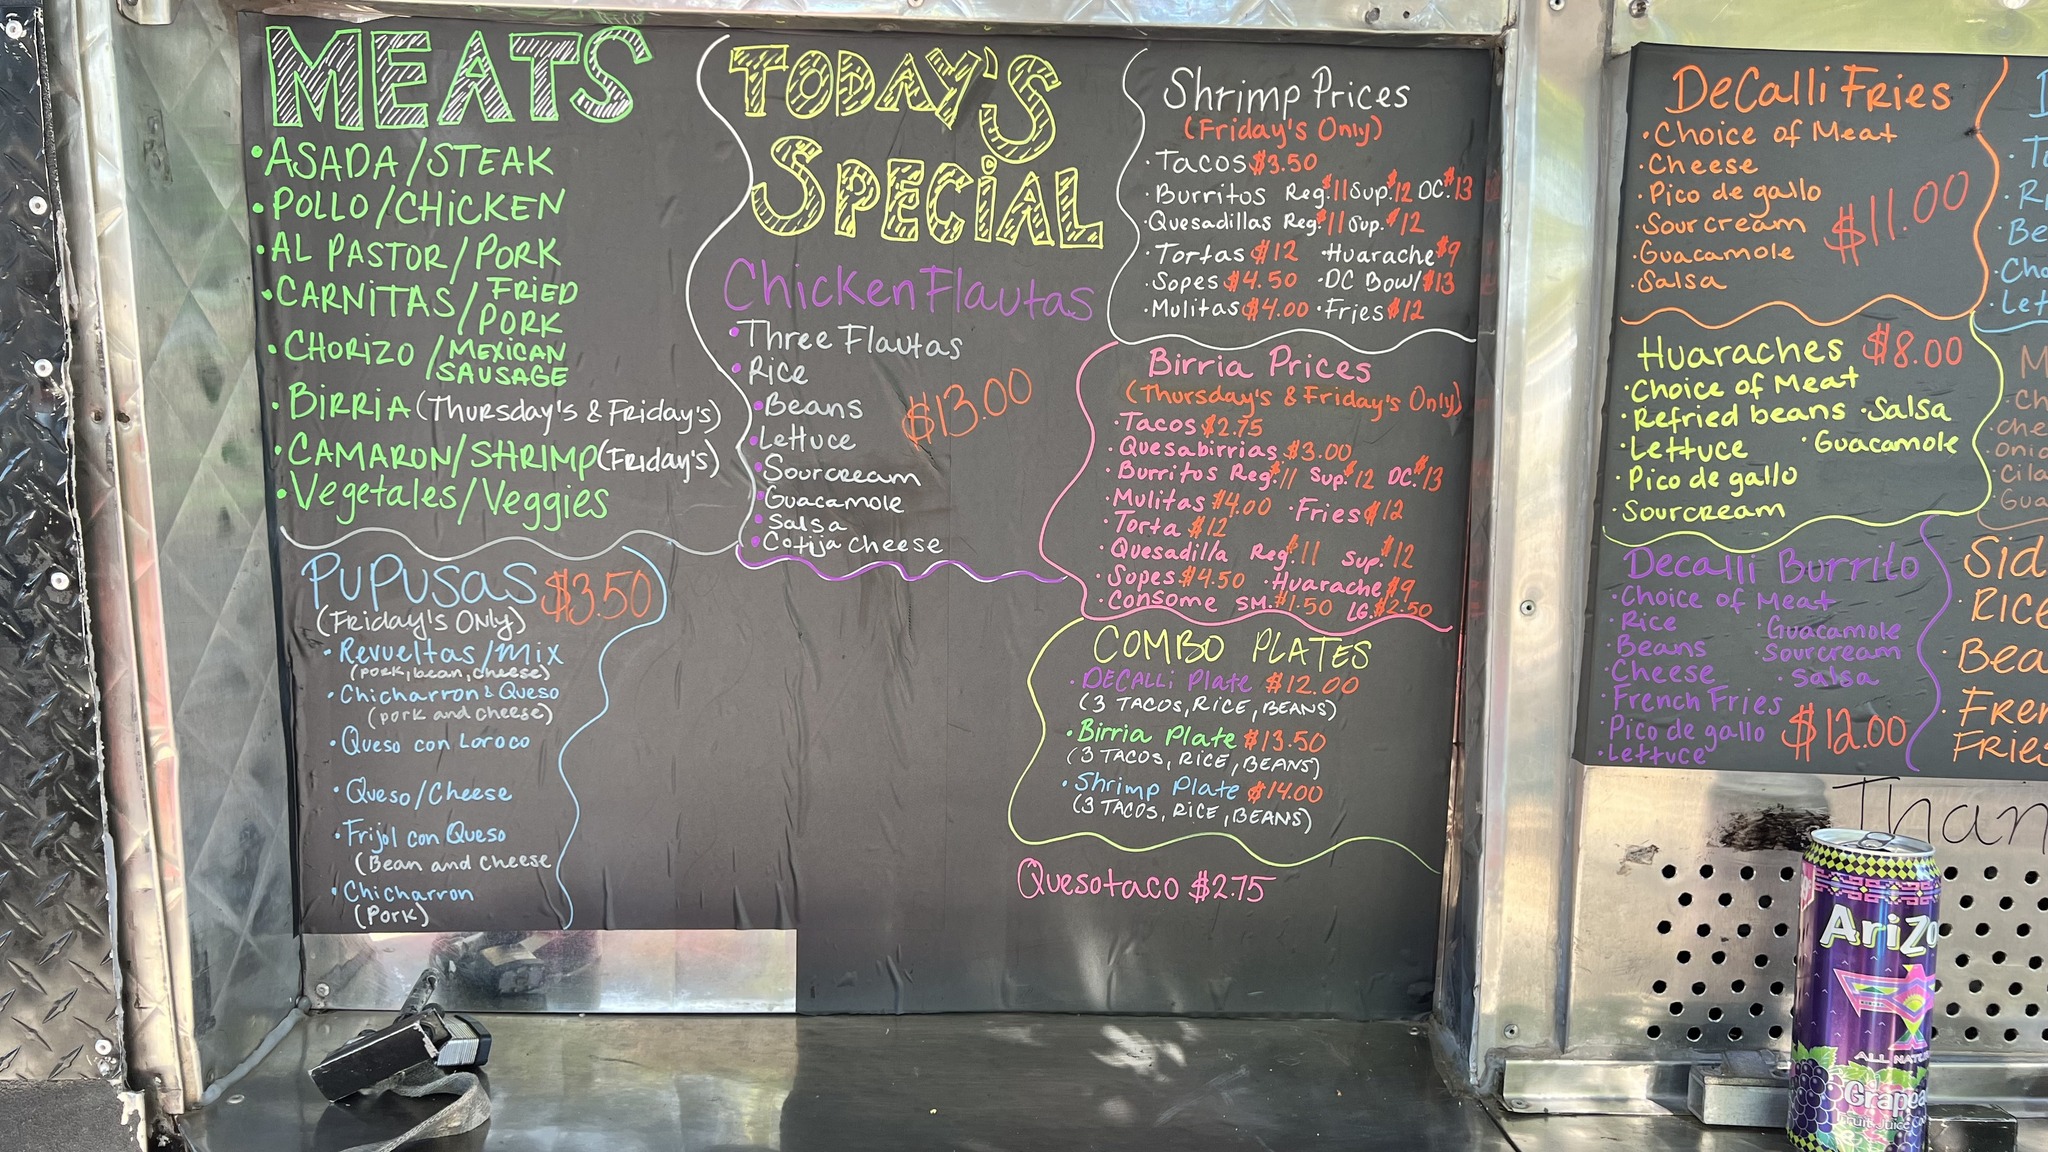 MEATS
• ASADA/STEAK
• POLLO/CHICKEN
• AL PASTOR/PORK
• CARNITAS/FRIED PORK
• CHORIZO/MEXICAN SAUSAGE
• BIRRIA (THURSDAY'S & FRIDAY'S)
• CAMARON/SHRIMP (FRIDAY'S)
• Vegetales/Veggies
PUPUSAS $3.50
(FRIDAY'S ONLY)
• Revueltas/Mix
(pork, bean, cheese)
• Chicharron & Queso
(pork and cheese)
• Queso con Loroco
• Queso/Cheese
• Frijol con Queso
(Bean and cheese
• Chicharron
(Pork)
TODAY'S
SPECIAL
Chicken Flautas
• Three Flautas
• Rice
• Beans
• Lettuce
• Sourcream
• Guacamole
• Salsa
• Cotija cheese
$13.00
Shrimp Prices
(Friday's Only)
• Tacos $3.50
• Burritos Reg. $11 Sup. $12 DC. $13
• Quesadillas Reg. $11 Sup. $12
• Tortas $12 • Huarache $9
• Sopes $4.50 • DC Bowl $13
• Mulitas $4.00 • Fries $12
Birria Prices
(Thursday's & Friday's Only)
• Tacos $2.75
• Quesabirrias $3.00
• Burritos Reg. $11 Sup. $12 DC. $13
• Mulitas $4.00 • Fries $12
• Torta $12
• Quesadilla Reg. $11 Sup. $12
• Sopes $4.50 • Huarache $9
• Consome SM. $1.50 LG. $2.50
COMBO PLATES
• DECALLi Plate $12.00
(3 TACOS, RICE, BEANS)
• Birria Plate $13.50
(3 TACOS, RICE, BEANS)
• Shrimp Plate $14.00
(3 TACOS, RICE, BEANS)
Quesotaco $2.75
DeCalli Fries
• Choice of Meat
• Cheese
• Pico de gallo
• Sour cream
• Guacamole
• Salsa
$11.00
Huaraches $8.00
• Choice of Meat
• Refried beans • Salsa
• Lettuce • Guacamole
• Pico de gallo
• Sourcream
Decalli Burrito
• Choice of Meat
• Rice • Guacamole
• Beans • Sourcream
• Cheese • Salsa
• French Fries
• Pico de gallo $12.00
• Lettuce
Rice
Fries
AriZo
ALL NATU
Grapea
Fruit Juice